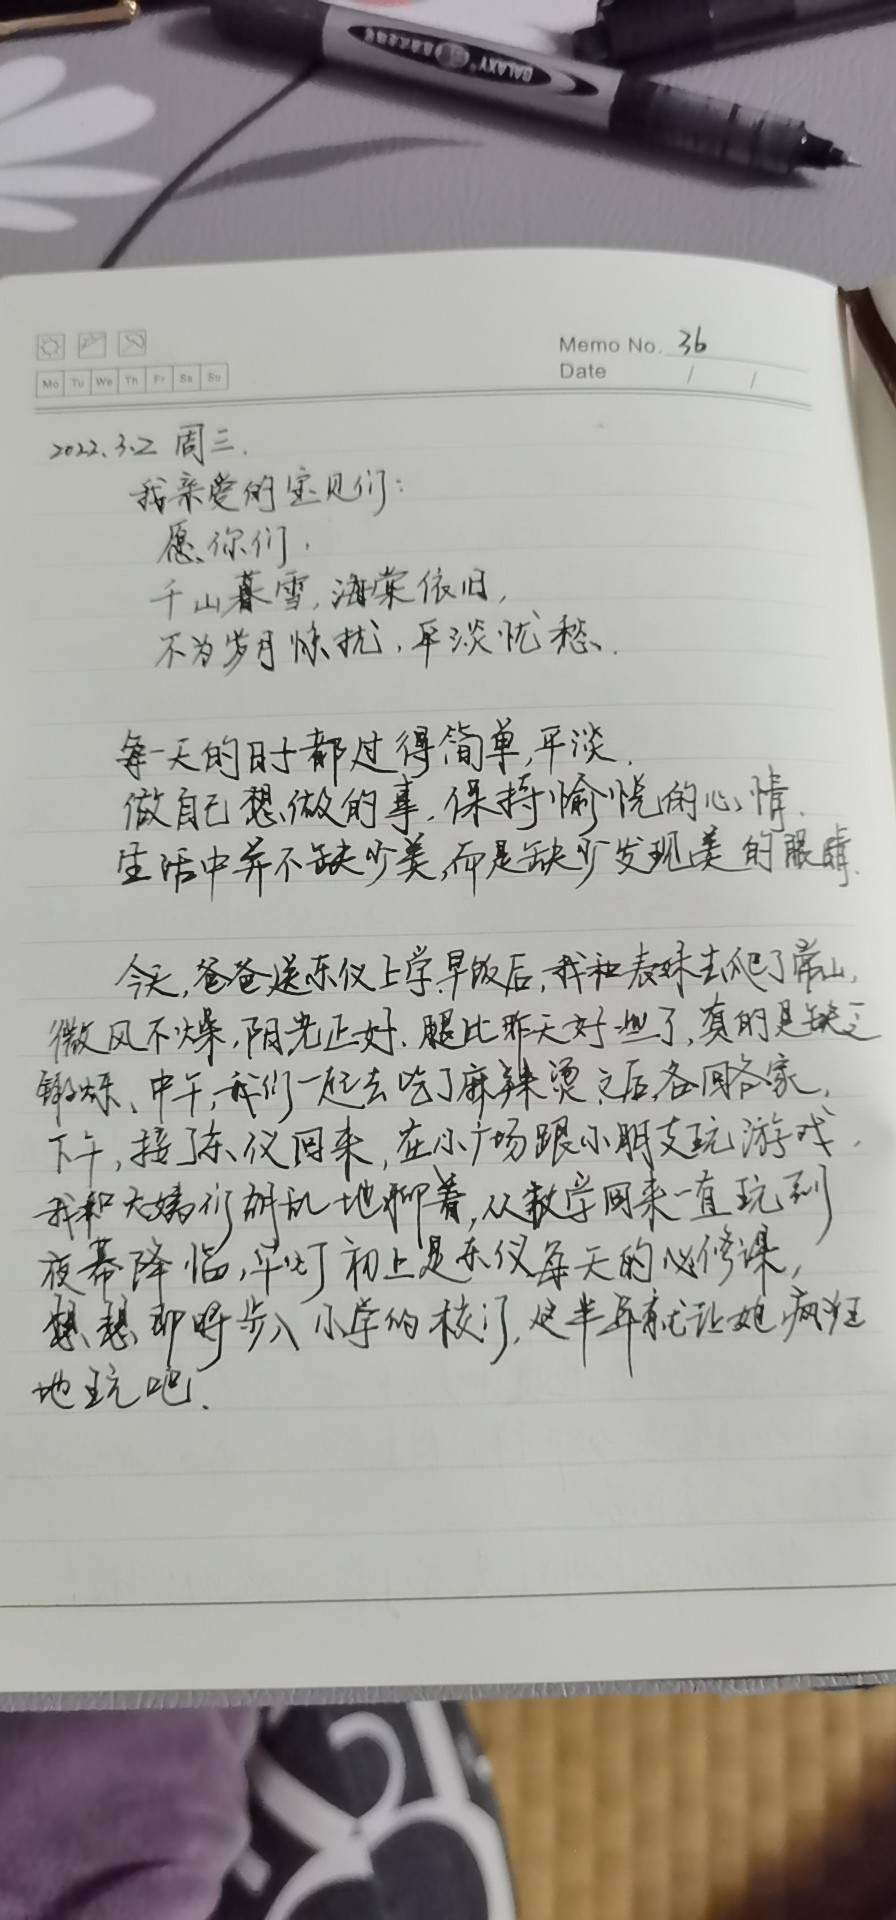 GALAXY
Memo No. 36
Mo Tu We Th Fr Sa Su
Date / /
2022.3.2 周三.
我亲爱的宝贝们：
愿你们，
千山暮雪，海棠依旧，
不为岁月惊扰，平淡忧愁.
每一天的日子都过得简单，平淡.
做自己想做的事，保持愉悦的心情.
生活中并不缺少美，而是缺少发现美的眼睛.
今天，爸爸送东仪上学，早饭后，我和表妹去爬了常山，
微风不燥，阳光正好，腿比昨天好一些了，真的是缺乏
锻炼、中午，我们一起去吃了麻辣烫之后，各回各家，
下午，接了东仪回来，在小广场跟小朋友玩游戏，
我和大姨们胡乱地聊着，从放学回来一直玩到
夜幕降临，华灯初上是东仪每天的必修课，
想想即将步入小学的校门，这半年就让她疯狂
地玩吧.